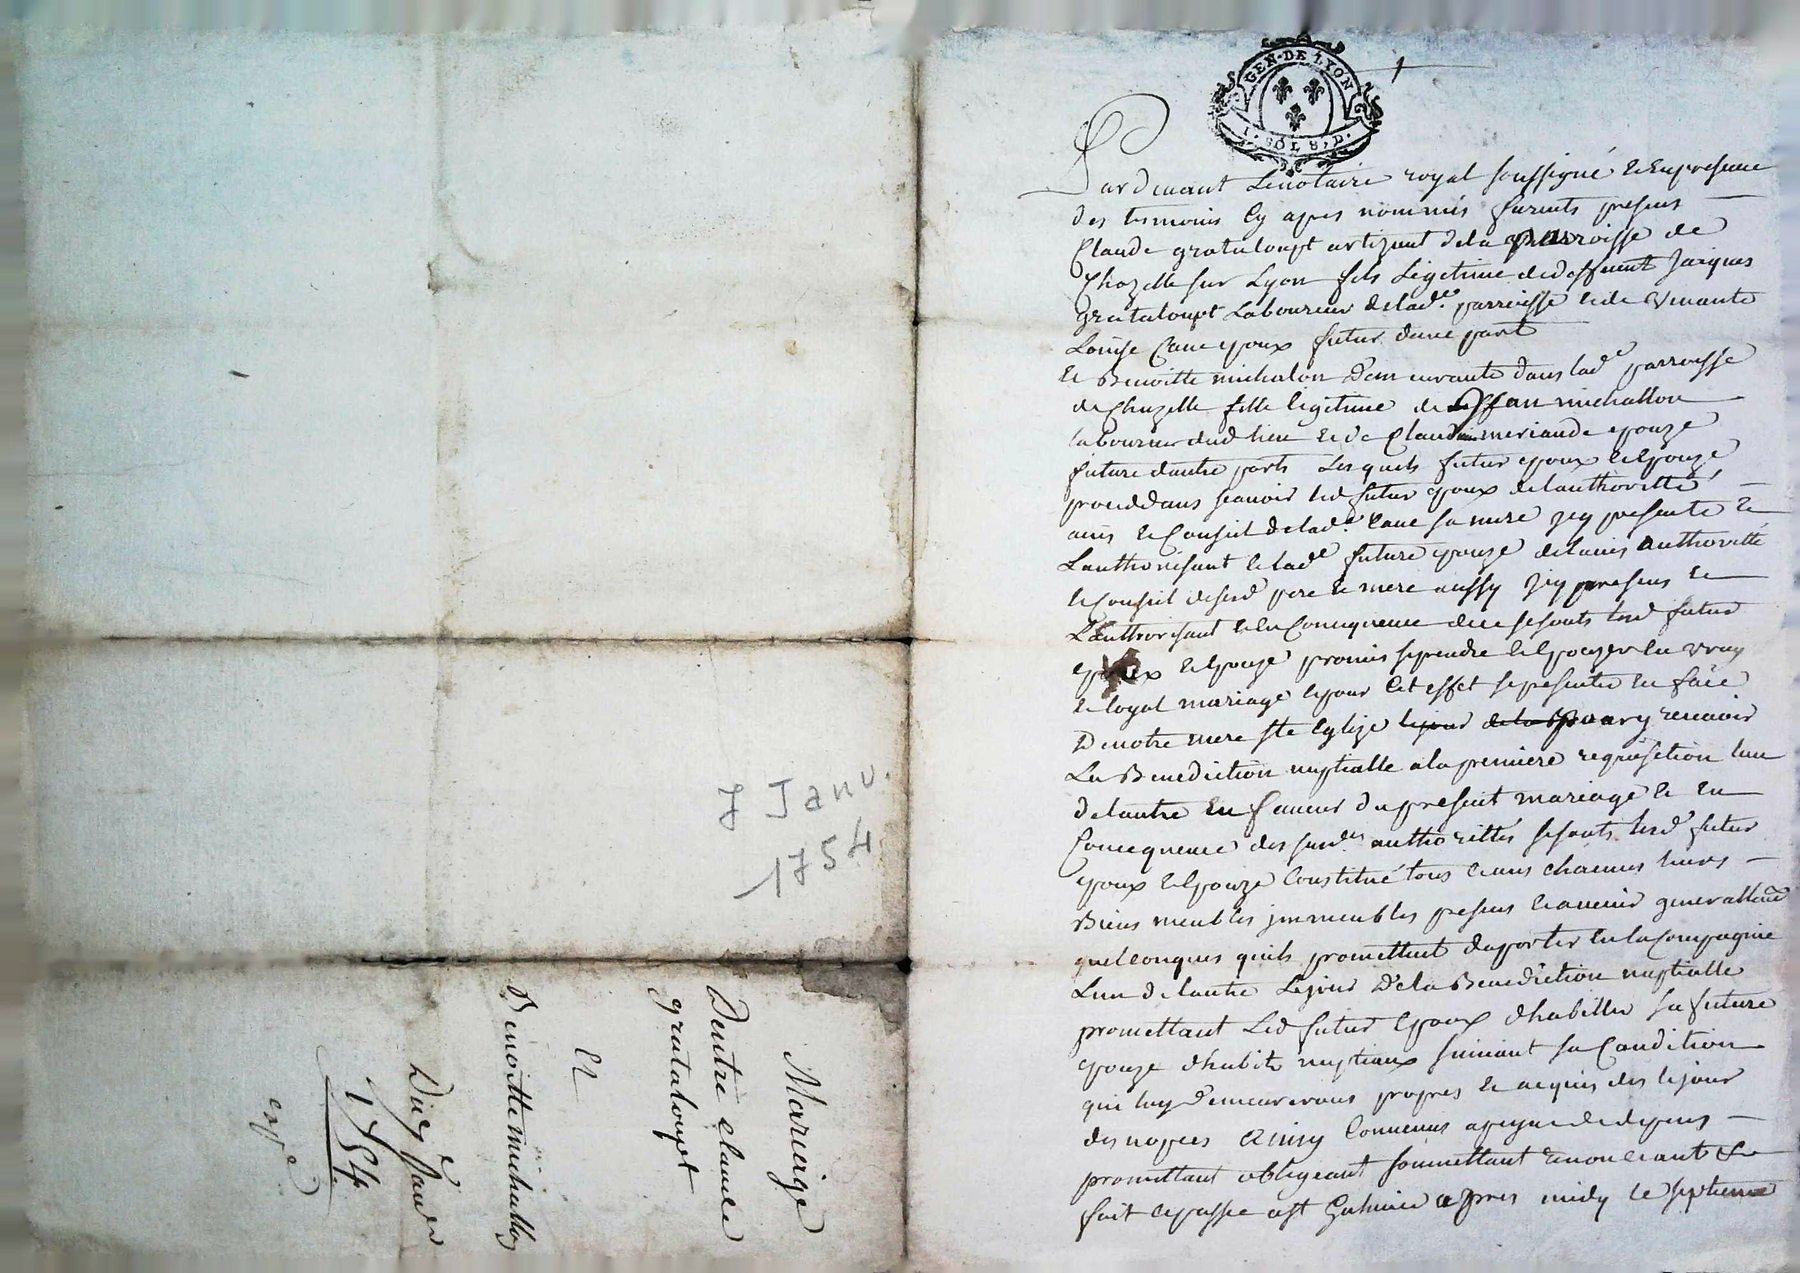 7 Janv.
1754
Mariage
Dentre claude
grataloupt
Et
Benoitte michallon
Du 7e Janver
1754
expe
GEN. DE LYON
1
Pardevant Lenotaire royal soussigné et Enpresence
des tesmoins Cy apres nommés furents presens
Claude grataloupt artizant dela parroisse de
Chazelle sur Lyon fils Légetime de deffunt Jacques
grataloupt Laboureur delade parroisse et de vivante
Louise Cave epoux futur dune part
Et Benoitte michalon Demeurante dans lade parroisse
de Chazelle fille legetime de michallon
laboureur dud lieu Et De epouze
future dautre part Lesquels futur epoux et Epouze
proceddans scavoir led futur epoux delauthoritté
avis et Conseil delade Cave sa mere icy presente Et
Lauthorisant et lade future epouze delavis authoritté
et Conseil desesd pere et mere aussy icy presens Et
Lauthorisant et En Concequence dece sesonts lesd futur
epoux et Epouze promis seprendre et Epouzer En vray
et loyal mariage et pour Cet effet sepresenter En face
De notre mere ste Eglize recevoir
La Benediction nuptialle ala premiere requisetion lun
delautre En faveur du present mariage et En
Concequence des susdes authorittés sesonts lesd futur
epoux et Epouze Constitué tous et uns chacuns leurs
Biens meubles immeubles presens et avenir generallement
quelconques quils promettent daporter En la Compagnie
Lun delautre Lejour Dela Benediction nuptialle
promettant Led futur Epoux dhabiller sa future
epouze dhabits nuptiaux suivant sa Condition
qui luy Demeurerons propres et acquis des lejour
des nopces Ainsy Convenus apeyne de depens
promettant obligeant soumettant renoncant &
fait et passé apres midy le septieme